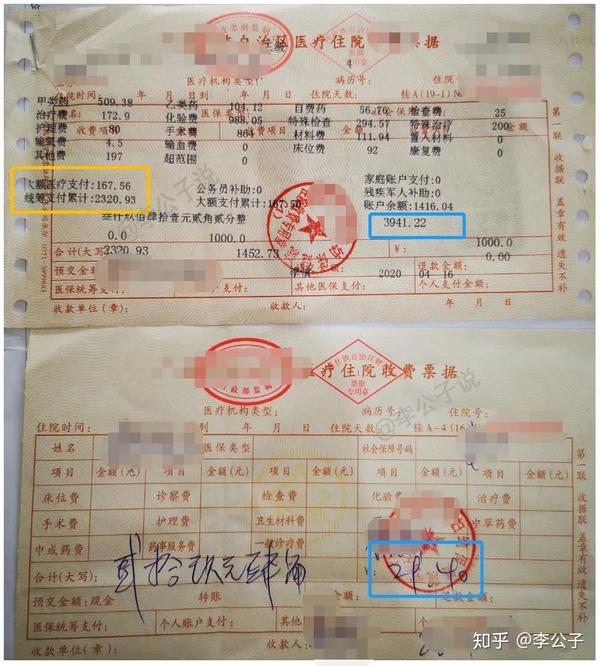 自治区医疗住院 票据
4
医疗机构类型: 病历号: 住院号:
住院时间: 年 月 日到 年 月 日 住院天数: 桂A(19-1)
甲类药 509.38 乙类药 104.12 自费药 56.76 检查费 25
治疗费 172.9 化验费 988.05 特殊检查 294.57 特殊治疗 200
护理费 80 手术费 864 材料费 111.94 置入材料 0
输氧费 4.5 输血费 0 床位费 92 康复费 0
其他费 197 超范围 0
大额医疗支付:167.56 公务员补助:0 家庭账户支付:0
统筹支付累计:2320.93 大额支付累计:167.56 残疾军人补助:0
账户余额:1416.04
叁仟玖佰肆拾壹元贰角贰分整 3941.22
0.0 1000.0 1000.0
合计(大写) 2320.93 1452.73 ¥: 0.00
预交金额: 2020 04 16 退款金额:
医保统筹支付: 其他医保支付: 个人支付金额:
收款单位(章): 收款人: 年 月 日
第一联 收据联 盖章有效 遗失不补
@李公子说
医疗住院收费票据
票据专用章
医疗机构类型: 病历号: 住院号:
住院时间: 年 月 日到 年 月 日 住院天数: 桂A-4(16
姓名 医保类型 社会保障号码
项目 金额(元) 项目 金额(元) 项目 金额(元) 项目 金额(元) 项目 金额(元)
床位费 诊察费 检查费 化验费 治疗费
手术费 护理费 卫生材料费 中草药费
中成药费 药事服务费 一般诊疗费
合计(大写) 贰拾玖元肆角 ¥: 29.40
预交金额:现金 转账 退款金额:
医保统筹支付: 个人账户支付: 其他医保支付:
收款单位(章): 收款人: 年 月 日
第一联 收据联 盖章有效 遗失不补
@李公子说
知乎 @李公子